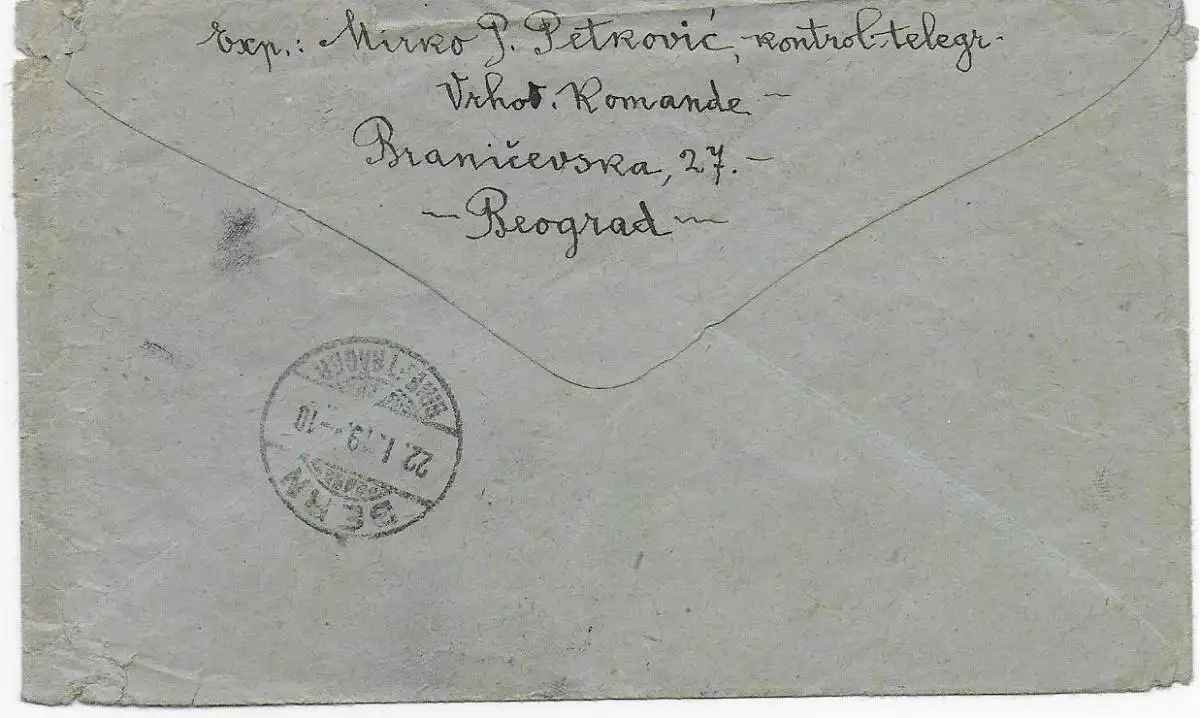 Exp.: Mirko P. Petković, kontrol-telegr-
Vrhov. Komande -
Braničevska, 27. -
- Beograd -
BERN
22. I. 19. -10